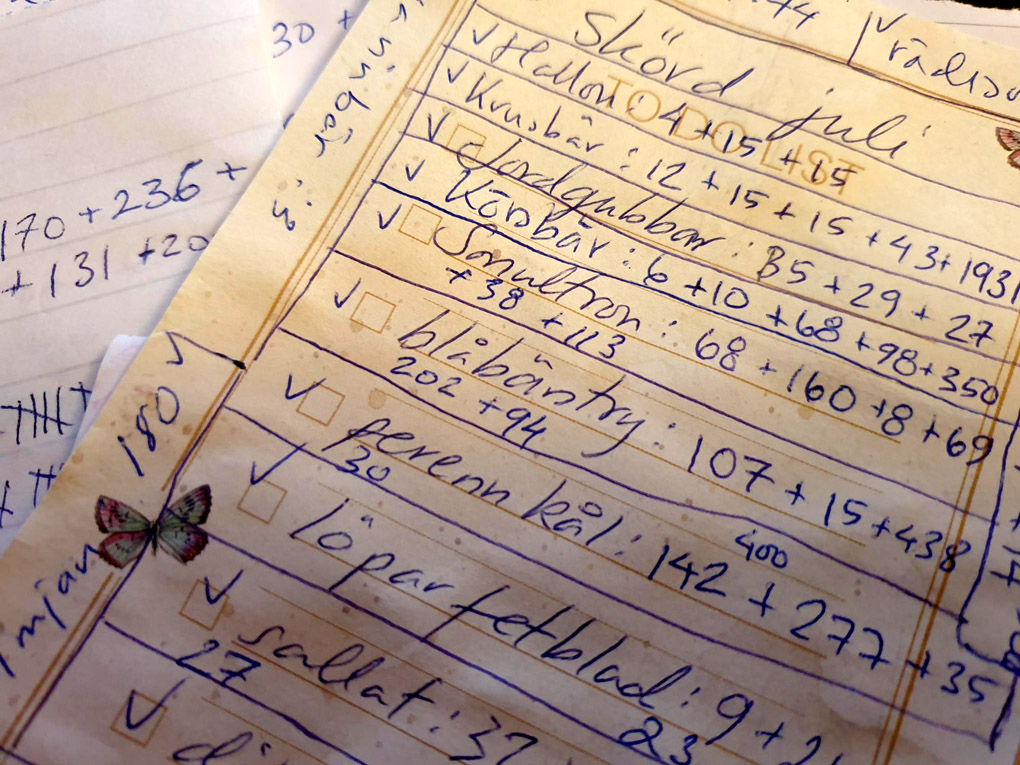 30 +
170 + 236 +
+ 131 + 20
180
Skörd juli
TO DO LIST
Hallon: 4 + 15 + 15
Krusbär: 12 + 15 + 15 + 43 + 1931
Jordgubbar: 35 + 29 + 27
Körsbär: 6 + 10 + 68 + 98 + 350
Smultron: 68 + 160 + 8 + 69
+ 38 + 113
blåbärstry: 107 + 15 + 438
202 + 94
perenn kål: 142 + 277 + 35
30
400
löpar fetblad: 9 +
23
sallat: 37
27
mjan